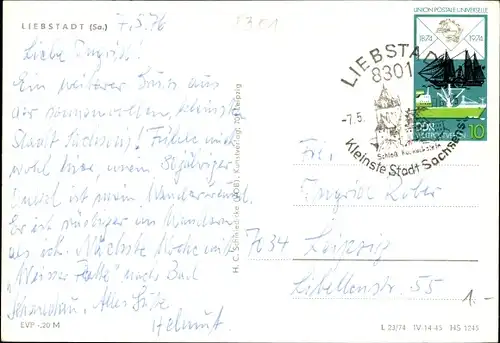 LIEBSTADT (Sa.) 7.5.76
8301
Liebe Ingrid!
Ein weiterer Gruß aus
der sonnenvollen, kleinste
Stadt Sachsens! Fühle mich
wohl hier, mein 80jähriger
ist mein Wanderfreund.
Er ist rüstiger im Wandern
als ich. Nächste Woche mit
"Weisser Flotte" nach Bad
Schandau. Alles Gute
Helmut
EVP -.20 M
H. C. Schmiedicke (KG), Kunstverlag, Leipzig
UNION POSTALE UNIVERSELLE
1874 1974
DDR
10
LIEBSTADT
8301
-7.5.
Schloß Kuckuckstein
Kleinste Stadt Sachsens
Fr.
Ingrid
7034 Leipzig
Libellenstr. 55
1.-
L 23/74 IV-14-45 HS 1245